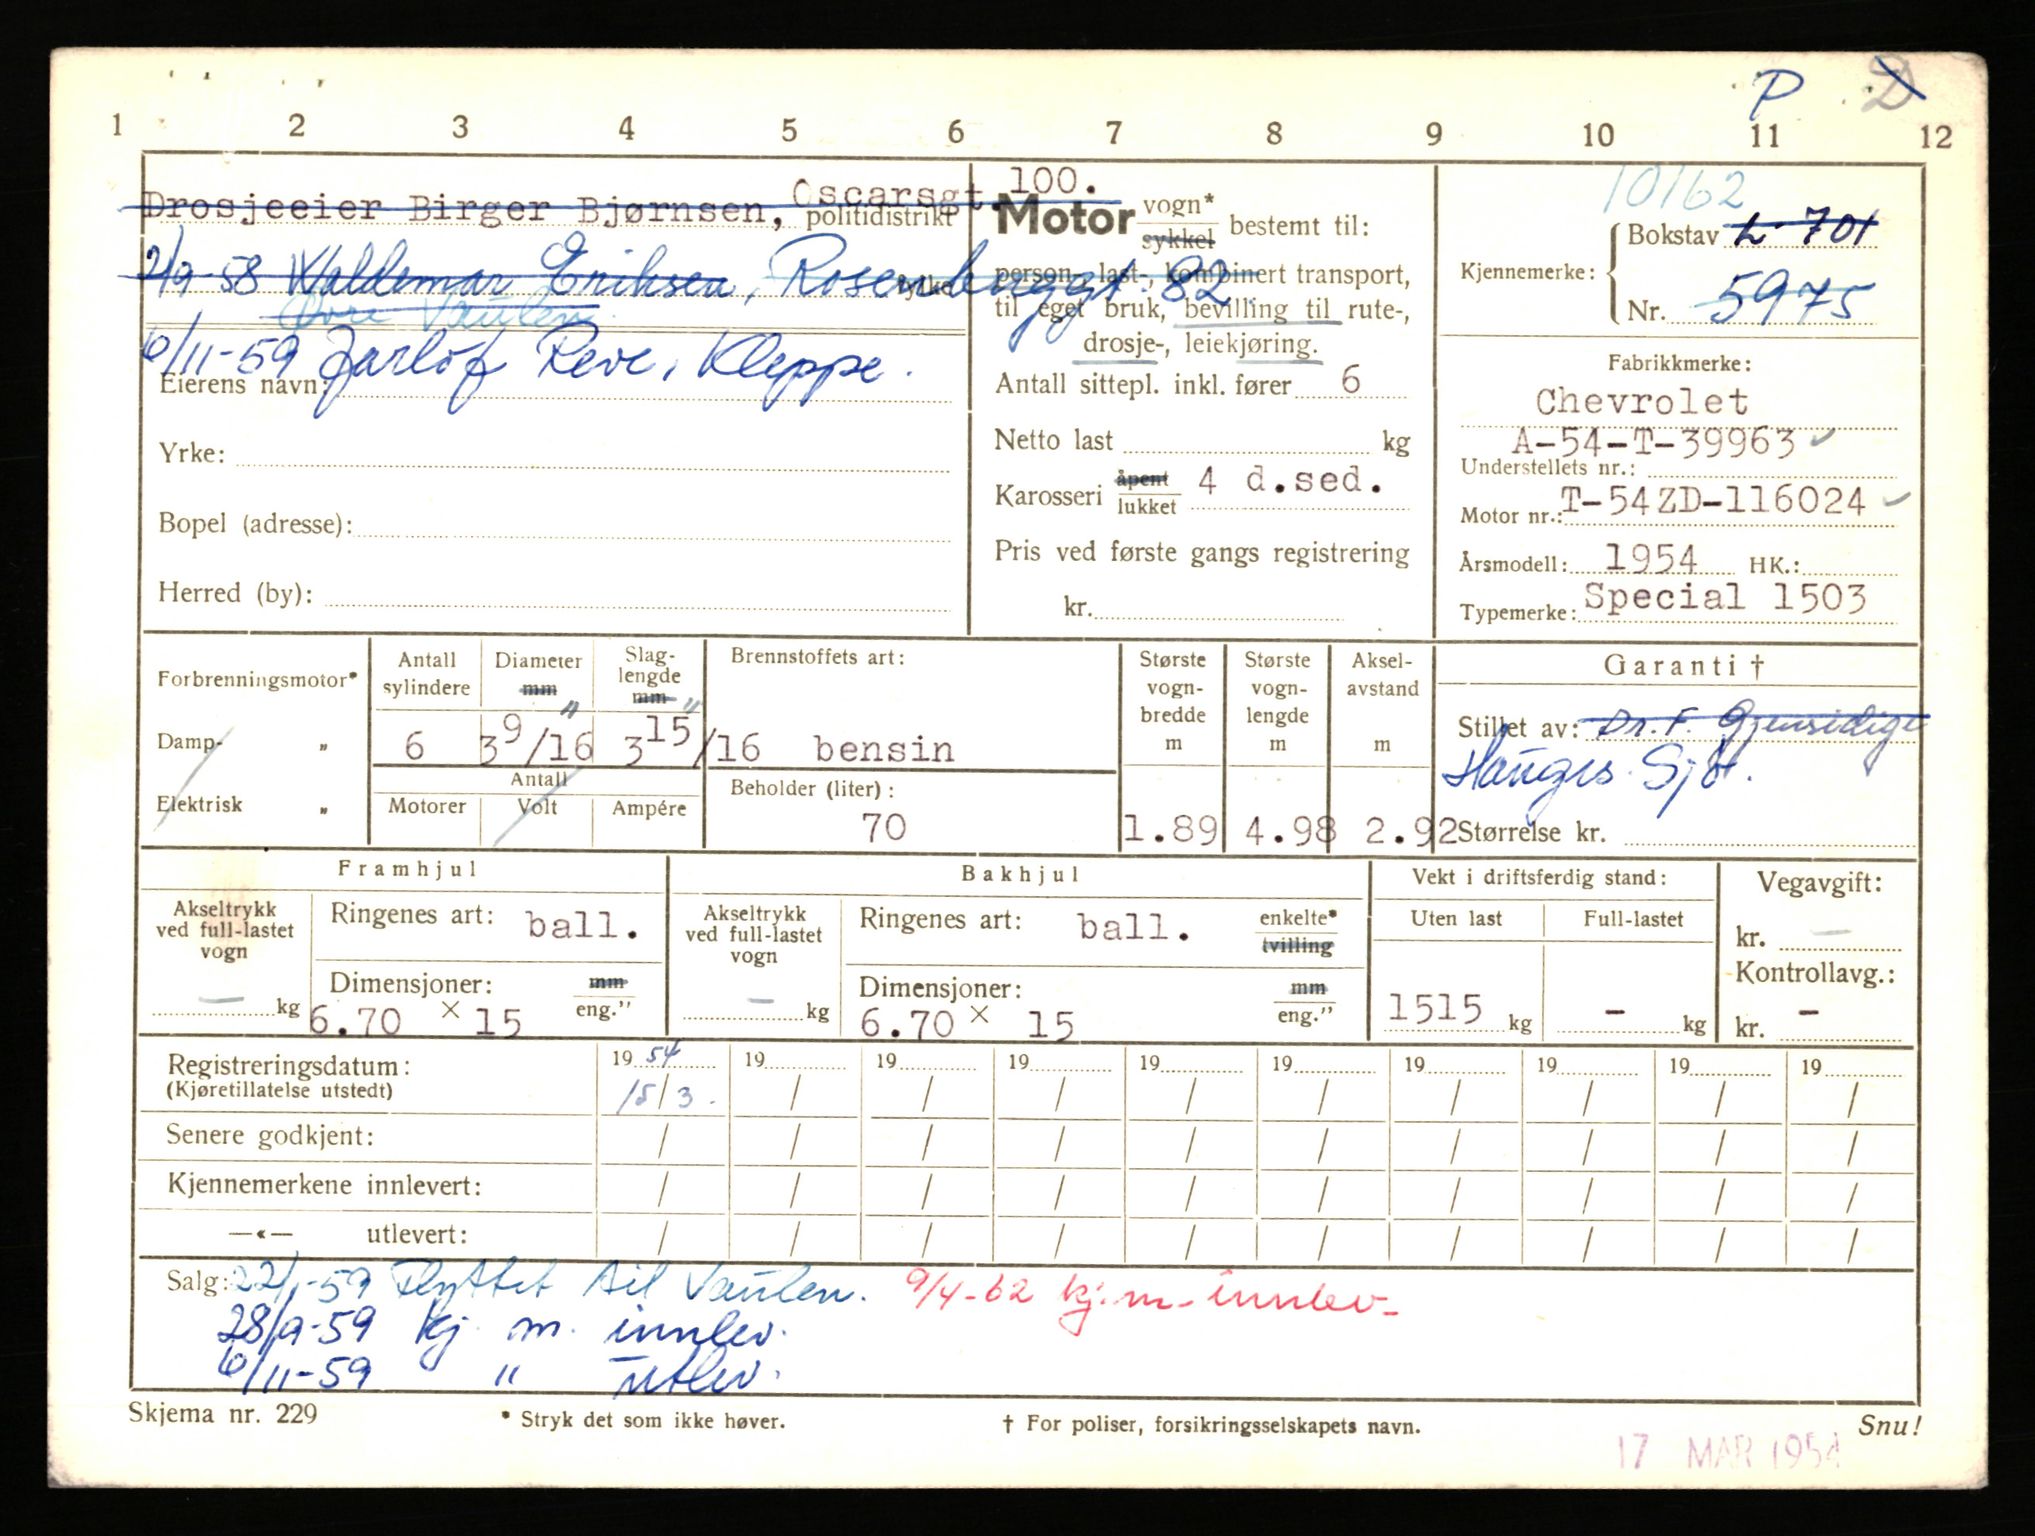 P D
1 2 3 4 5 6 7 8 9 10 11 12
Drosjeeier Birger Bjørnsen, Oscarsgt. 100.
politidistrikt
2/9-58 Waldemar Eriksen, Rosenberggt. 82
fylke
Øvre Vaulen
6/11-59 Jarlof Reve, Kleppe.
Eierens navn:
Yrke:
Bopel (adresse):
Herred (by):
Motor vogn* sykkel bestemt til:
person-, last-, kombinert transport,
til eget bruk, bevilling til rute-,
drosje-, leiekjøring.
Antall sittepl. inkl. fører 6
Netto last kg
Karosseri åpent lukket 4 d.sed.
Pris ved første gangs registrering
kr.
10/62
Kjennemerke: Bokstav L 701
Nr. 5975
Fabrikkmerke:
Chevrolet
A-54-T-39963
Understellets nr.:
Motor nr.: T-54ZD-116024
Årsmodell: 1954 HK.:
Typemerke: Special 1503
Forbrenningsmotor*
Damp- „
Elektrisk „
Antall sylindere
6
Diameter mm "
3 9/16
Slag-lengde mm "
3 15/16
Antall
Motorer Volt Ampére
Brennstoffets art:
bensin
Beholder (liter):
70
Største vogn-bredde m
1.89
Største vogn-lengde m
4.98
Aksel-avstand m
2.92
Garanti †
Stillet av: Dr. F. Gjensidige
Hauges. Sjø.
Størrelse kr.
Framhjul
Akseltrykk ved full-lastet vogn
— kg
Ringenes art: ball.
Dimensjoner: mm eng."
6.70 × 15
Bakhjul
Akseltrykk ved full-lastet vogn
— kg
Ringenes art: ball. enkelte* tvilling
Dimensjoner: mm eng."
6.70 × 15
Vekt i driftsferdig stand:
Uten last Full-lastet
1515 kg - kg
Vegavgift:
kr. —
Kontrollavg.:
kr. -
Registreringsdatum: 19 54 19 19 19 19 19 19 19 19 19
(Kjøretillatelse utstedt) 15/3. / / / / / / / / /
Senere godkjent: / / / / / / / / / /
Kjennemerkene innlevert: / / / / / / / / / /
—«— utlevert: / / / / / / / / / /
Salg: 22/1-59 Flyttet til Vaulen. 9/4-62 kj.m- innlev-
28/9-59 kj. m. innlev.
6/11-59 " utlev.
Skjema nr. 229
* Stryk det som ikke høver.
† For poliser, forsikringsselskapets navn.
Snu!
17 MAR 1954